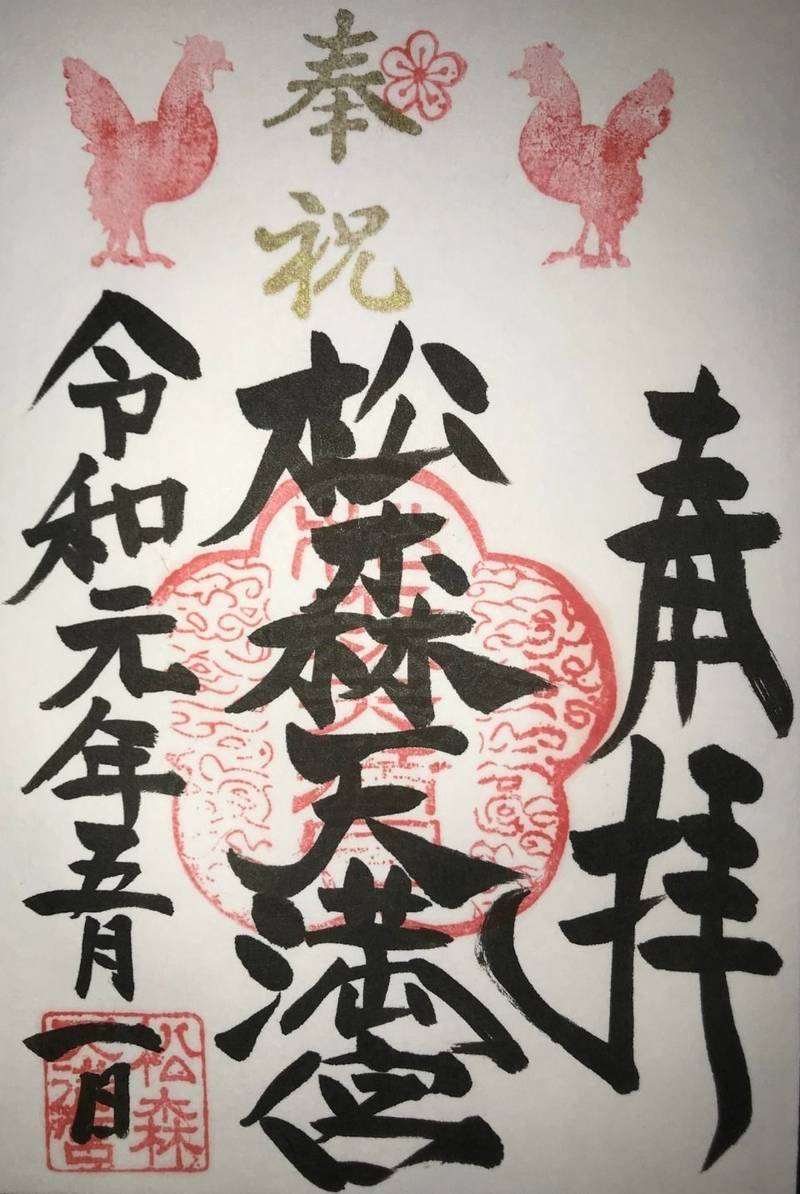 奉拝
奉祝
松森天満宮
令和元年五月一日
松森
天満宮